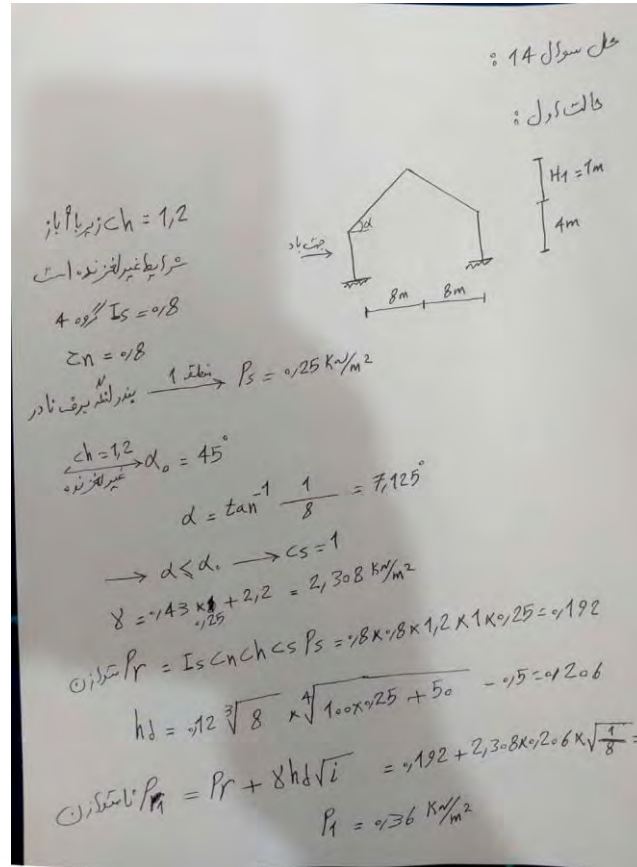 حل سوال 14 :
حالت اول :
H1 = 1m
4m
α
جهت باد
8m 8m
زیر باز Ch = 1,2
شرایط غیر لغزنده است
گروه 4 Is = 0,8
Cn = 0,8
بندر لنگه برف نادر منطقه 1 → Ps = 0,25 KN/m²
Ch = 1,2 غیر لغزنده → α₀ = 45°
α = tan⁻¹ 1/8 = 7,125°
→ α ≤ α₀ → Cs = 1
γ = 0,43 × 0,25 + 2,2 = 2,308 KN/m²
متوازن Pr = Is Cn Ch Cs Ps = 0,8 × 0,8 × 1,2 × 1 × 0,25 = 0,192
hd = 0,12 ∛8 × ∜100×0,25 + 50 - 0,5 = 0,206
نامتوازن P1 = Pr + γhd√i = 0,192 + 2,308 × 0,206 × √1/8 =
P1 = 0,36 KN/m²